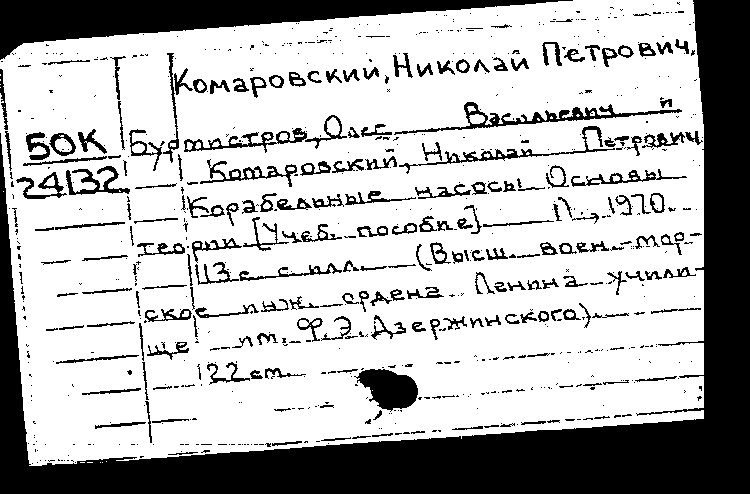 Комаровский, Николай Петрович.
50К
24132
Бурмистров, Олег Васильевич и
Комаровский, Николай Петрович
Корабельные насосы Основы
теории. [Учеб. пособие]. Л., 1970.
113 с. с илл. (Высш. воен.-мор-
ское инж. ордена Ленина училищ-
ще им. Ф.Э. Дзержинского).
22 см.